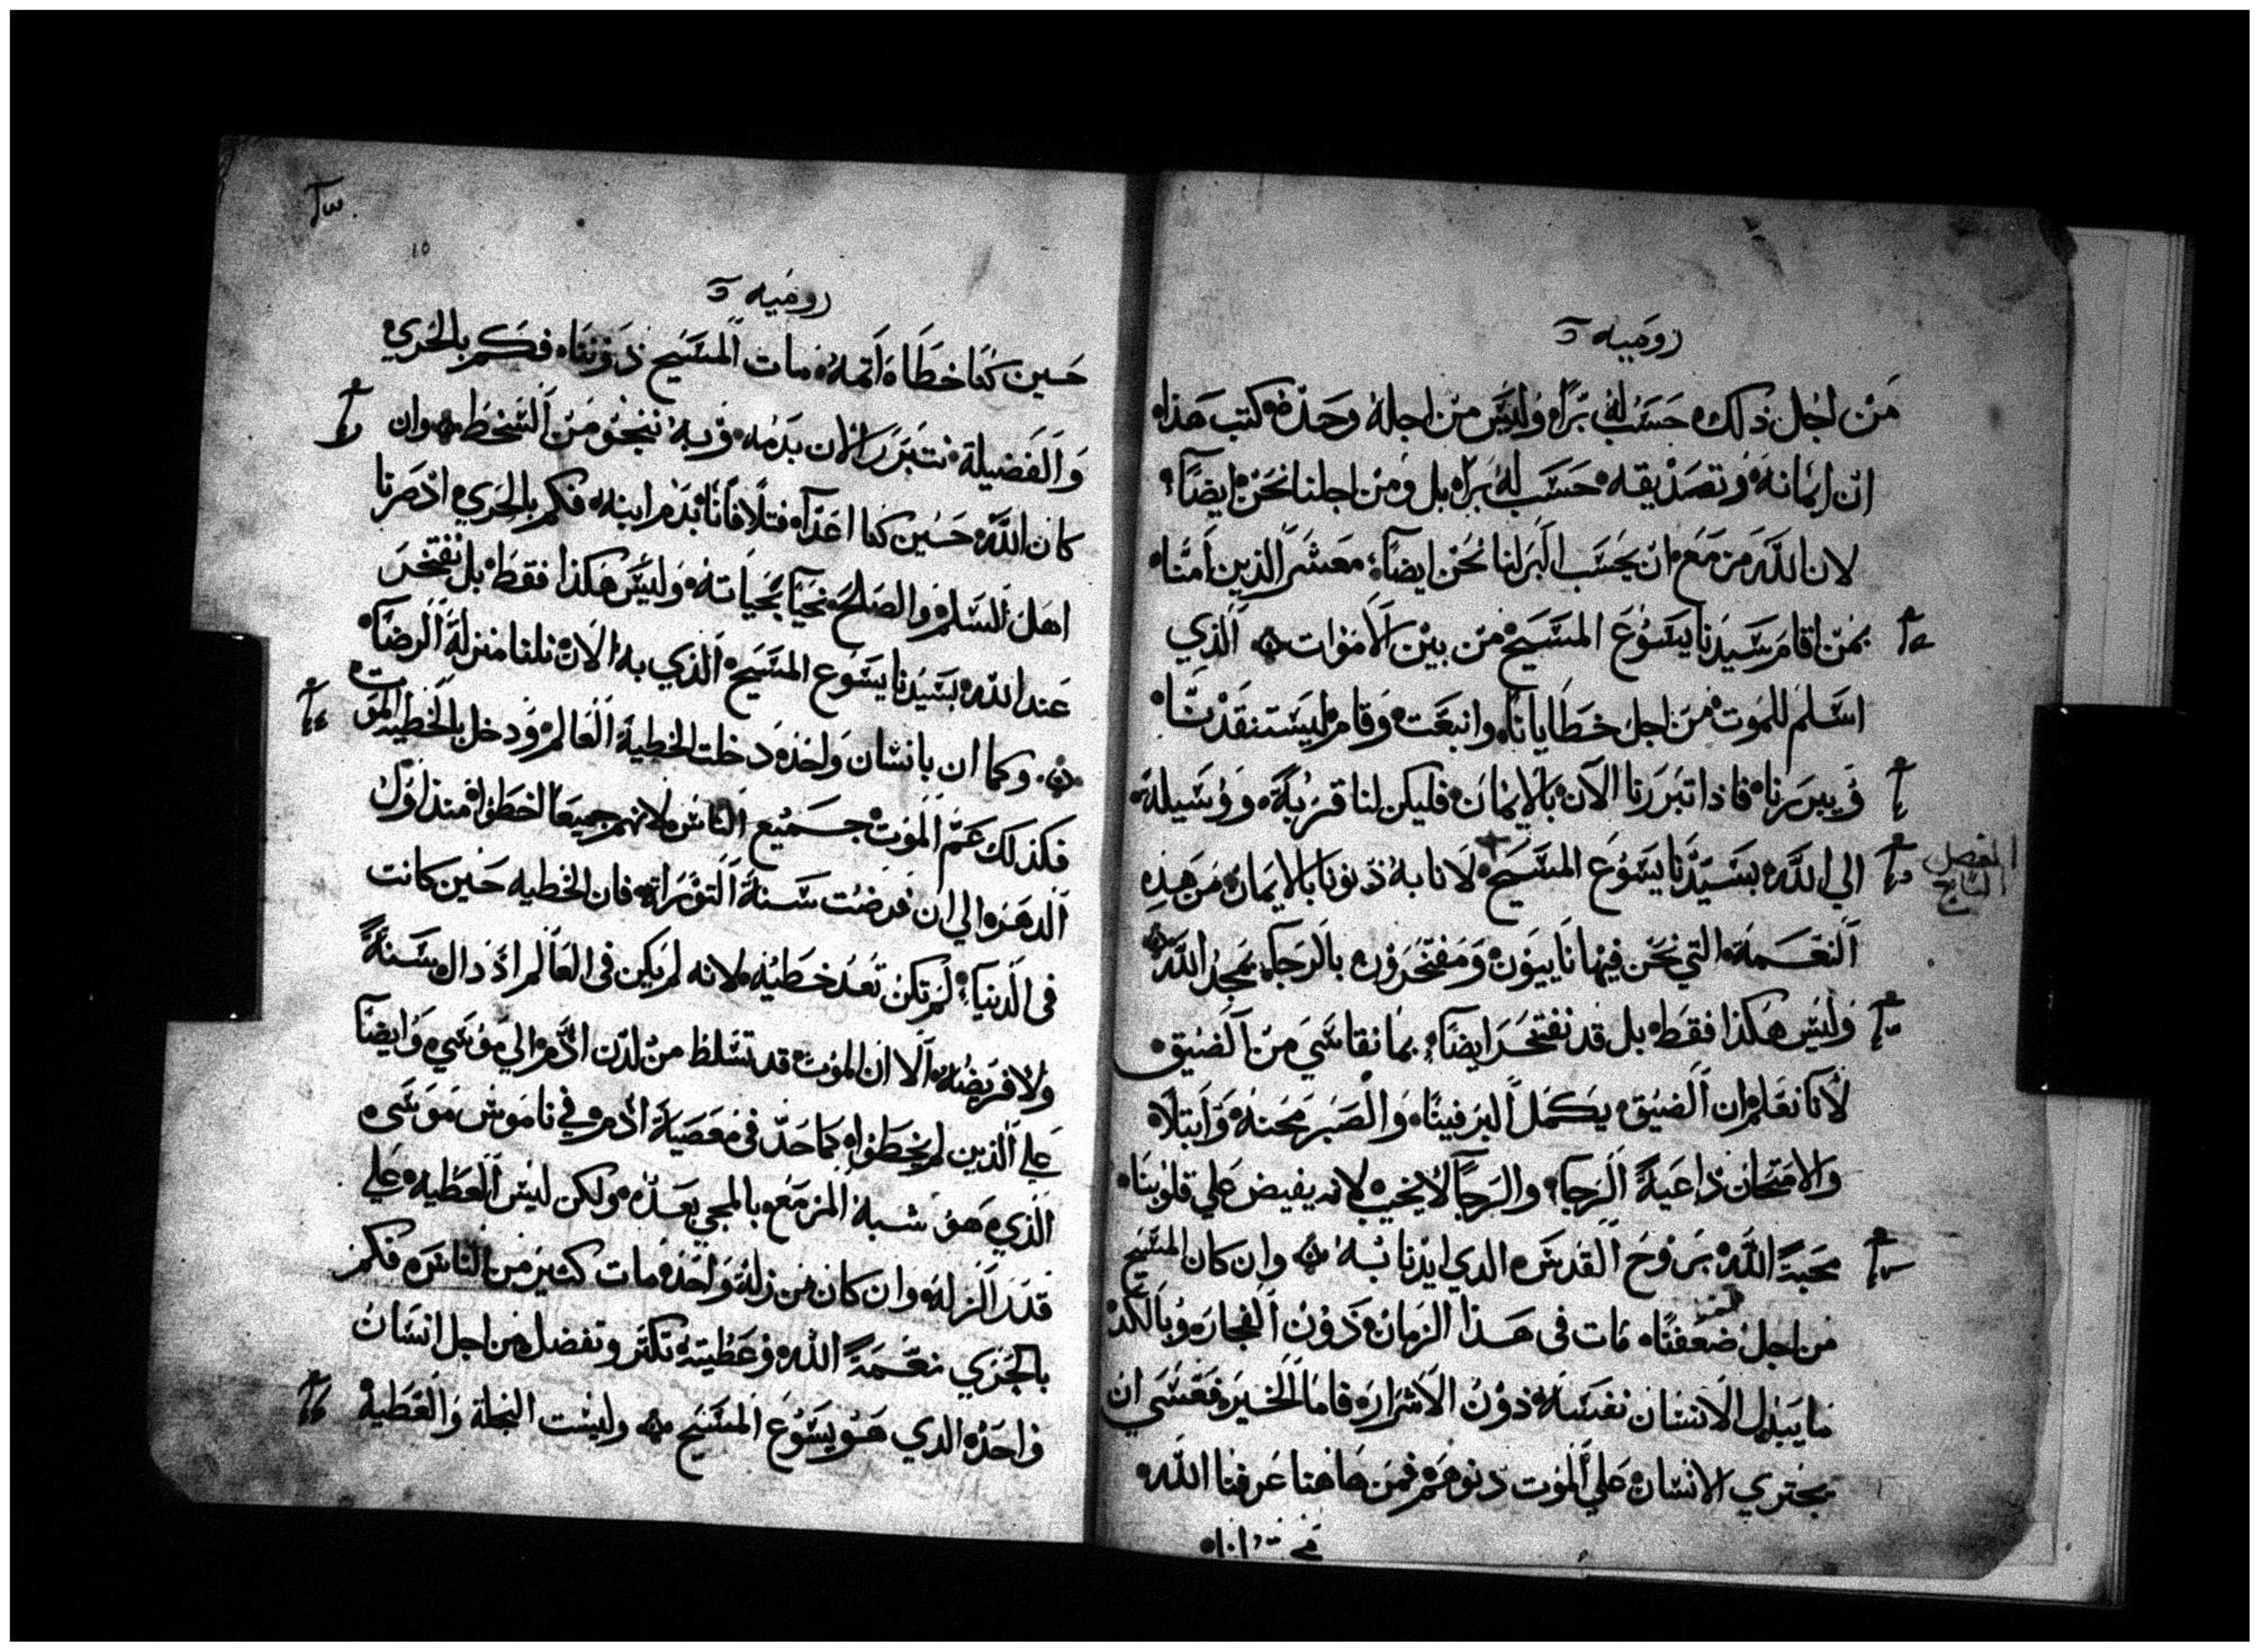 روميه
من اجل ذلك حسب له براً وليس من اجله وحده كتب هذا
ان ايمانه وتصديقه حسب له براً بل ومن اجلنا نحن ايضاً
لان الله مزمع ان يحسب البر لنا نحن ايضاً معشر الذين امنا
بمن اقام سيدنا يسوع المسيح من بين الاموات الذي
اسلم للموت من اجل خطايانا وانبعت وقام ليستنقدنا
ويبررنا فاذا تبررنا الان بالايمان فليكن لنا قربة ووسيلة
الي الله بسيدنا يسوع المسيح لانا به دنونا بالايمان من هذه
المفصل
النعمة التي نحن فيها تابيون ومفتخرون بالرجا بمجد الله
وليس هكذا فقط بل قد نفتخر ايضاً بما نقاسي من الضيق
لانا نعلم ان الضيق يكمل البر فينا والصبر محنة وابتلا
والامتحان داعية الرجا والرجا لا يخيب لانه يفيض علي قلوبنا
محبة الله بروح القدس الدي ايدنا به وان كان المسيح
من اجل ضعفنا مات في هذا الزمان دون الفجار وبالكد
ما يبدل الانسان نفسه دون الاشرار فاما الخير فعسي ان
يجتري الانسان علي الموت دونهم فمن هاهنا عرفنا الله
١٥
روميه
حسين كنا خطاة اتمه مات المسيح دوننا فكم بالحري
والفضيلة نتبرر الان بدمه وبه ننجو من السخط وان
كان الله حسين كنا اعداً فتلافانا بدم ابنه فكم بالحري اذ صرنا
اهل السلم والصلح نحيا بحياته وليس هكذا فقط بل نفتخر
عند الله بسيدنا يسوع المسيح الذي به الان نلنا منزلة الرضا
وكما ان بانسان واحد دخلت الخطية العالم ودخل بالخطية الموت
فكذلك عم الموت جميع الناس لانهم جميعاً اخطوا منذ اول
الدهر الي ان فرضت سنة التوراة فان الخطيه حين كانت
في الدنيا لم تكن تعد خطيه لانه لم يكن في العالم اذ ذاك سنة
ولا فريضة الا ان الموت قد تسلط من لدن ادم الي موسي وايضا
علي الذين لم يخطوا كما حد في معصية ادم في ناموس موسي
الذي هو شبه المزمع بالمجي بعده ولكن ليس العطيه علي
قدر الزلة وان كان من زلة واحد مات كثير من الناس فكم
بالجزي نعمة الله وعطيته تكتر وتفضل من اجل انسان
واحد الدي هو يسوع المسيح وليست النحلة والعطية